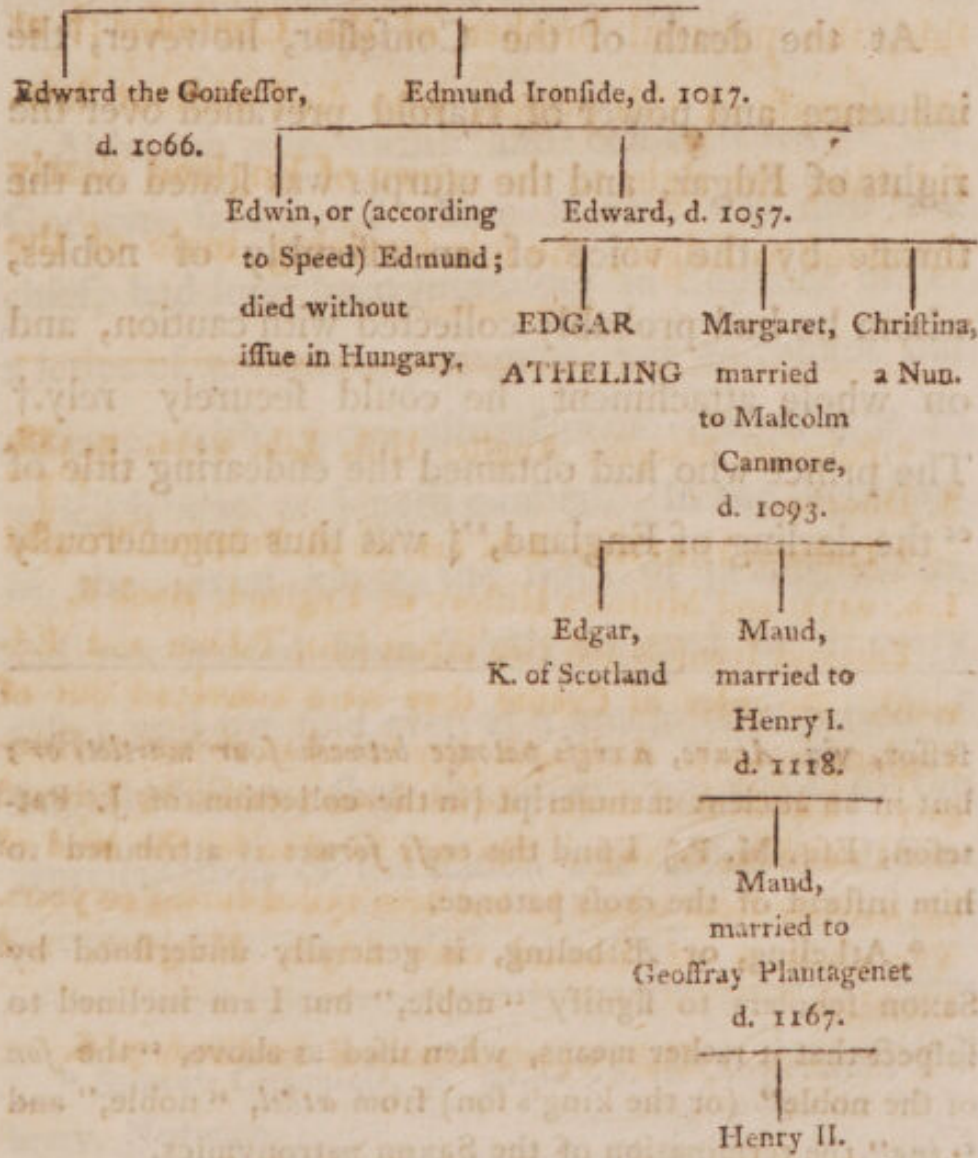 Edward the Gonfeſſor,
d. 1066.
Edmund Ironſide, d. 1017.
Edwin, or (according
to Speed) Edmund;
died without
iſſue in Hungary.
Edward, d. 1057.
EDGAR
ATHELING
Margaret,
married
to Malcolm
Canmore,
d. 1093.
Chriſtina,
a Nun.
Edgar,
K. of Scotland
Maud,
married to
Henry I.
d. 1118.
Maud,
married to
Geoffray Plantagenet
d. 1167.
Henry II.